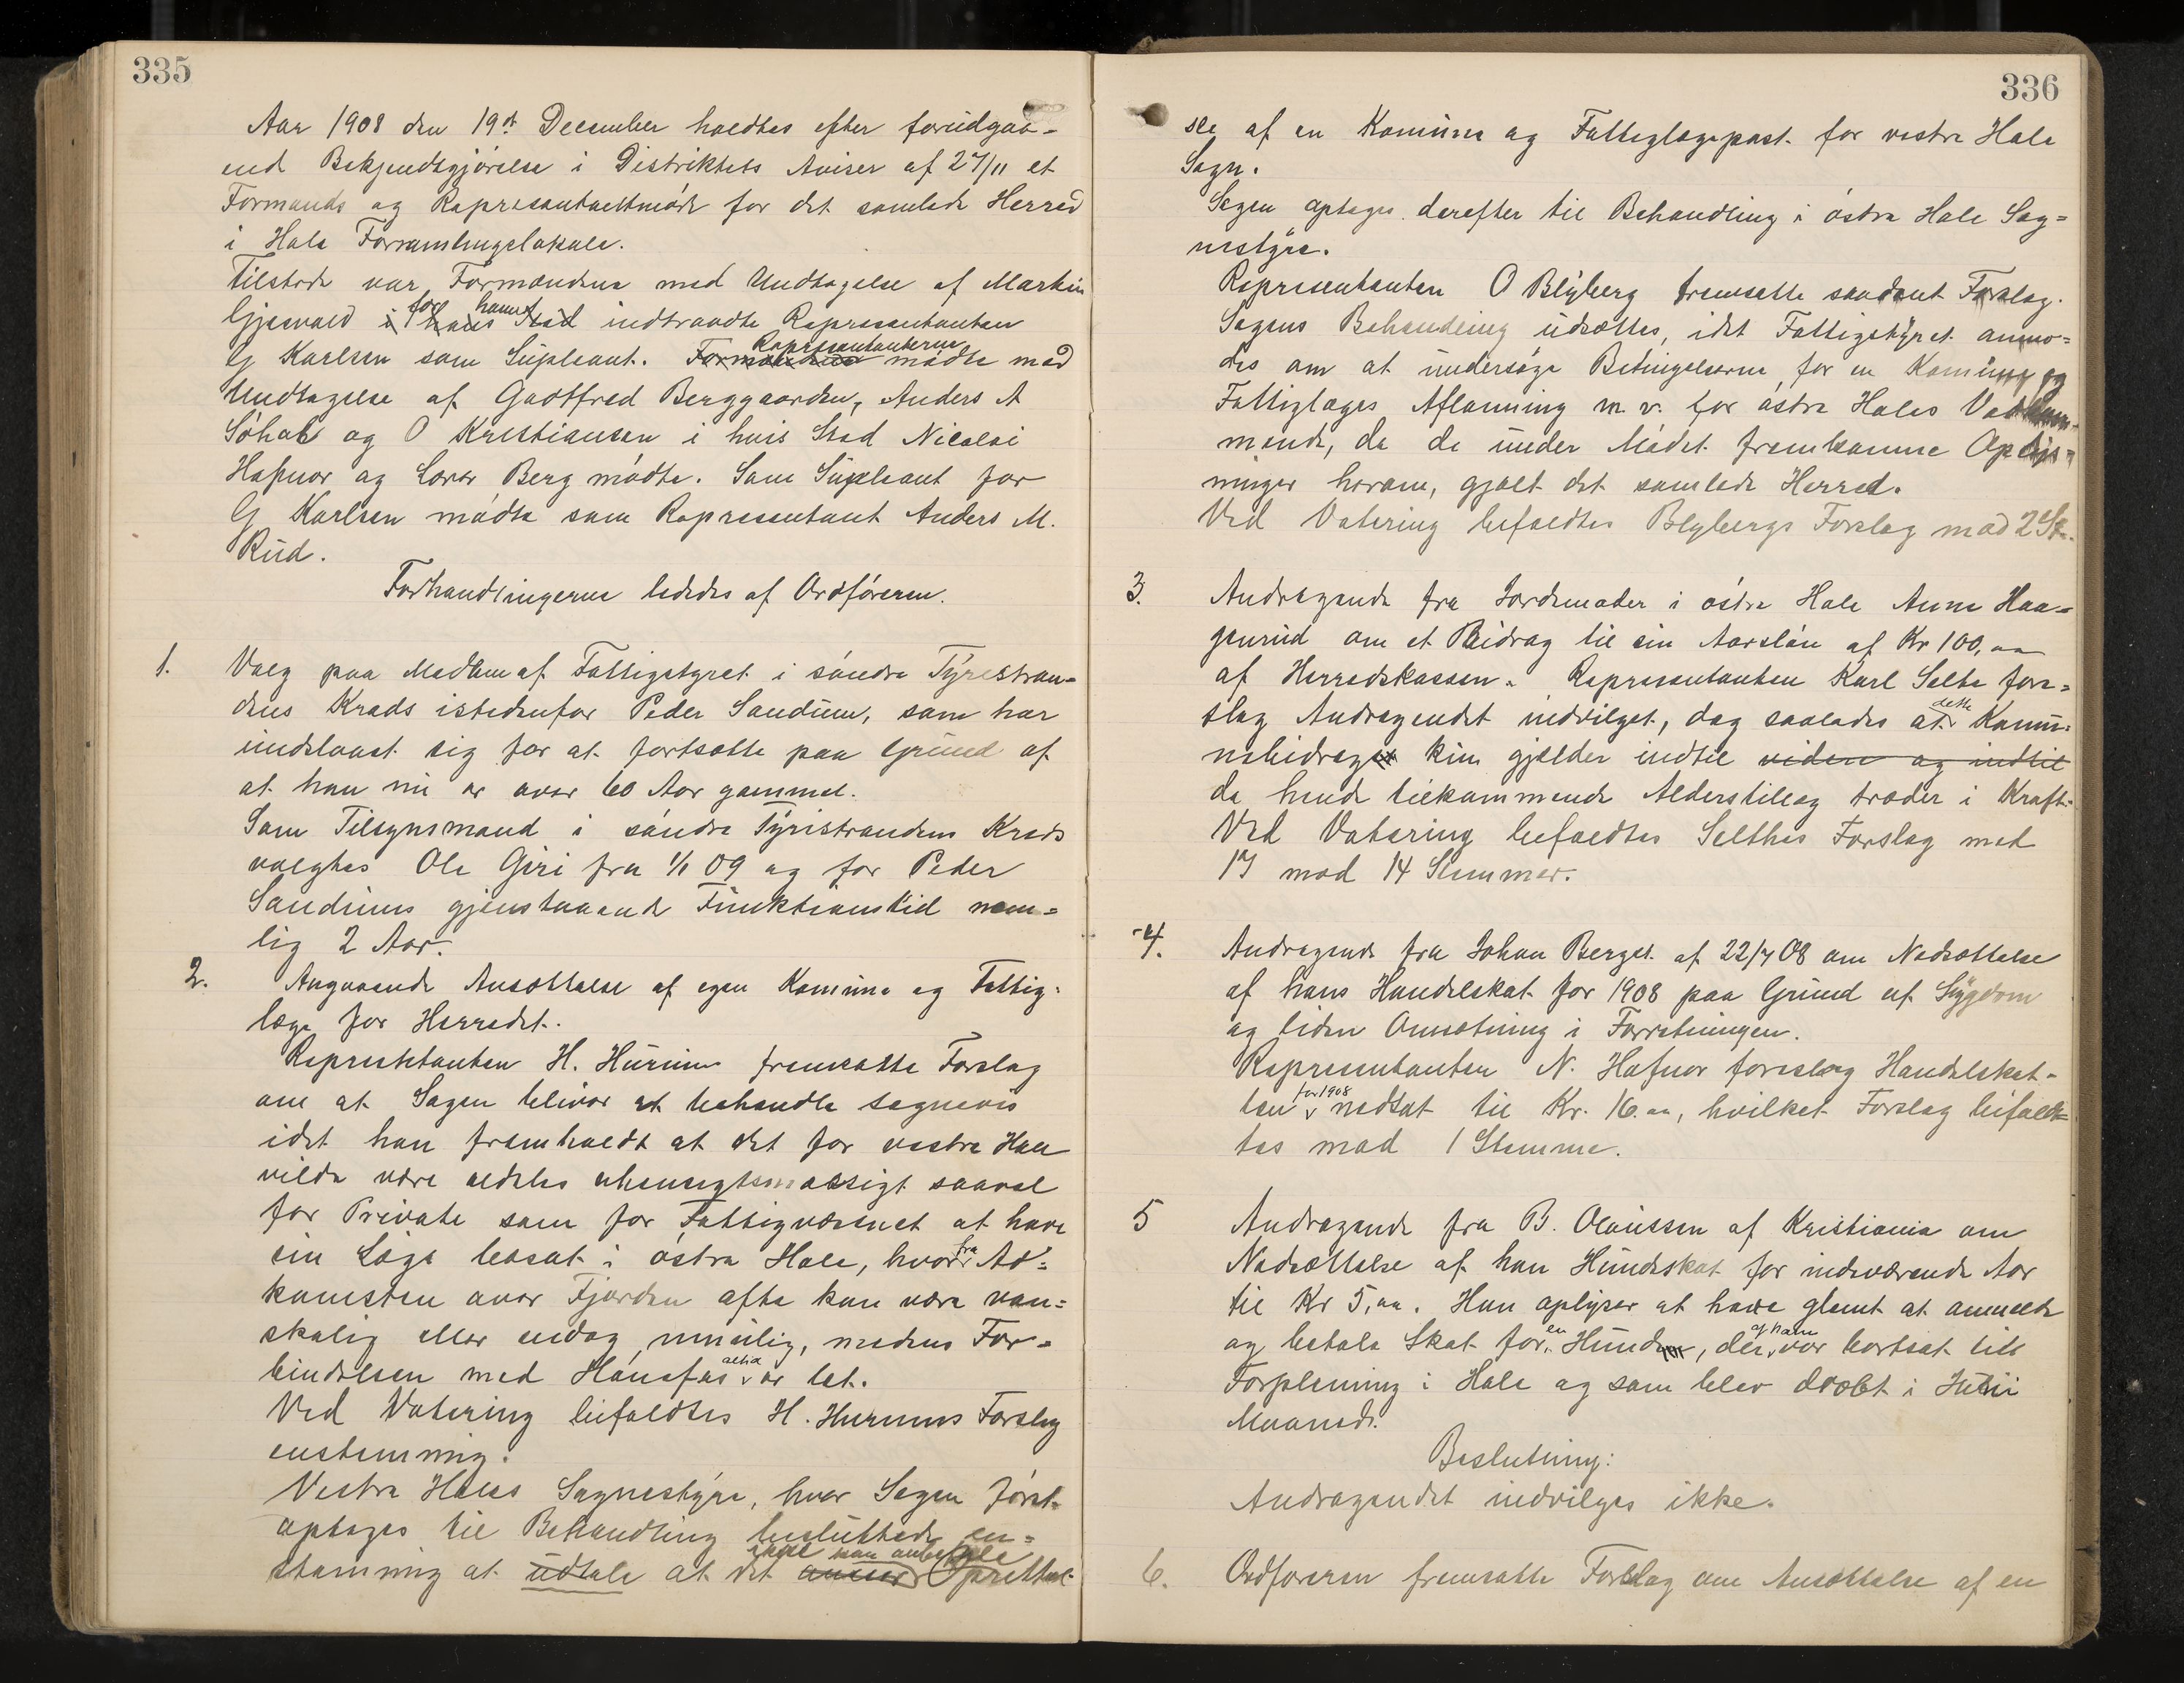 335
Aar 1908 den 19de December holdtes efter forudgaa-
end Bekjendtgjørelse i Distriktets Aviser af 27/11 et
Formands og Representantmøde for det samlede Herred
i Hole Forsamlingslokale.
Tilstede var Formændene med Undtagelse af Martin
Gjesvold i hans Sted for ham indtraadte Representanten
G Karlsen som Supleant. Formændene Representanterne mødte med
Undtagelse af Gudtfred Berggaarden, Anders A
Søhol og O Kristiansen i hvis Sted Nicolai
Hafnor og Lærer Berg mødte. Som Supleant for
G Karlsen mødte som Representant Anders M.
Rud.
Forhandlingerne lededes af Ordføreren.
1. Valg paa Medlem af Fattigstyret i søndre Tyristran-
dens Kreds istedenfor Peder Sundum, som har
undslaaet sig for at fortsætte paa Grund af
at han nu er over 60 Aar gammel.
Som Tilsynsmand i søndre Tyristrandens Kreds
valgtes Ole Giri fra 1/1 09 og for Peder
Sundums gjenstaaende Funktionstid nem-
lig 2 Aar.
2. Angaaende Ansættelse af egen Komune og Fattig-
læge for Herredet.
Representanten H. Hurum fremsatte Forslag
om at Sagen bliver at behandle sognevis
idet han fremholdt at det for vestre Hole
vilde være aldeles uhensigtsmæssigt saavel
for Private som for Fattigvæsenet at have
sin Læge bosat i østre Hole, hvorfra Ad-
komsten over Fjorden ofte kan være van-
skelig eller endog umulig, medens For-
bindelsen med Hønefos altid er let.
Ved Votering bifaldtes H. Hurums Forslag
enstemmig.
Vestre Holes Sognestyre, hvor Sagen først
optages til Behandling besluttede en-
stemmig at udtale at det anser ikke kan anbefale Oprettel-
336
se af en Komune og Fattiglægepost for vestre Hole
Sogn.
Sagen optages derefter til Behandling i østre Hole Sog-
nestyre.
Representanten O Blyberg fremsatte saadant Forslag.
Sagens Behandling udsættes, idet Fattigstyret anmo-
des om at undersøge Betingelserne for en Komune og
Fattiglæges Aflønning m. v. for østre Holes Vedkom-
mende, da de under Mødet fremkomne Oplys-
ninger herom, gjalt det samlede Herred.
Ved Votering bifaldtes Blybergs Forslag mod 2 St.
3. Andragende fra Jordemoder i østre Hole Anne Haa-
genrud om et Bidrag til sin Aarsløn af Kr 100,00
af Herredskassen. Representanten Karl Selte fore-
slog Andragendet indvilget, dog saaledes at dette Komu-
nebidrag kun gjælder indtil videre og indtil
de hende tilkommende Alderstillæg træder i Kraft.
Ved Votering bifaldtes Selthes Forslag med
17 mod 14 Stemmer.
4. Andragende fra Johan Berget af 22/7 08 om Nedsættelse
af hans Handelskat for 1908 paa Grund af Sygdom
og liden Omsætning i Forretningen.
Representanten N. Hafnor foreslog Handelskat-
ten for 1908 nedsat til Kr. 16.00, hvilket Forslag bifald-
tes mod 1 Stemme.
5 Andragende fra B. Olaussen af Kristiania om
Nedsættelse af han Hundeskat for indeværende Aar
til Kr 5,00. Han oplyser at have glemt at anmelde
og betale Skat for en Hund, der af ham var bortsat til
Forpleining i Hole og som blev dræbt i Juni
Maaned.
Beslutning:
Andragendet indvilges ikke.
6. Ordføreren fremsatte Forslag om Ansættelse af en